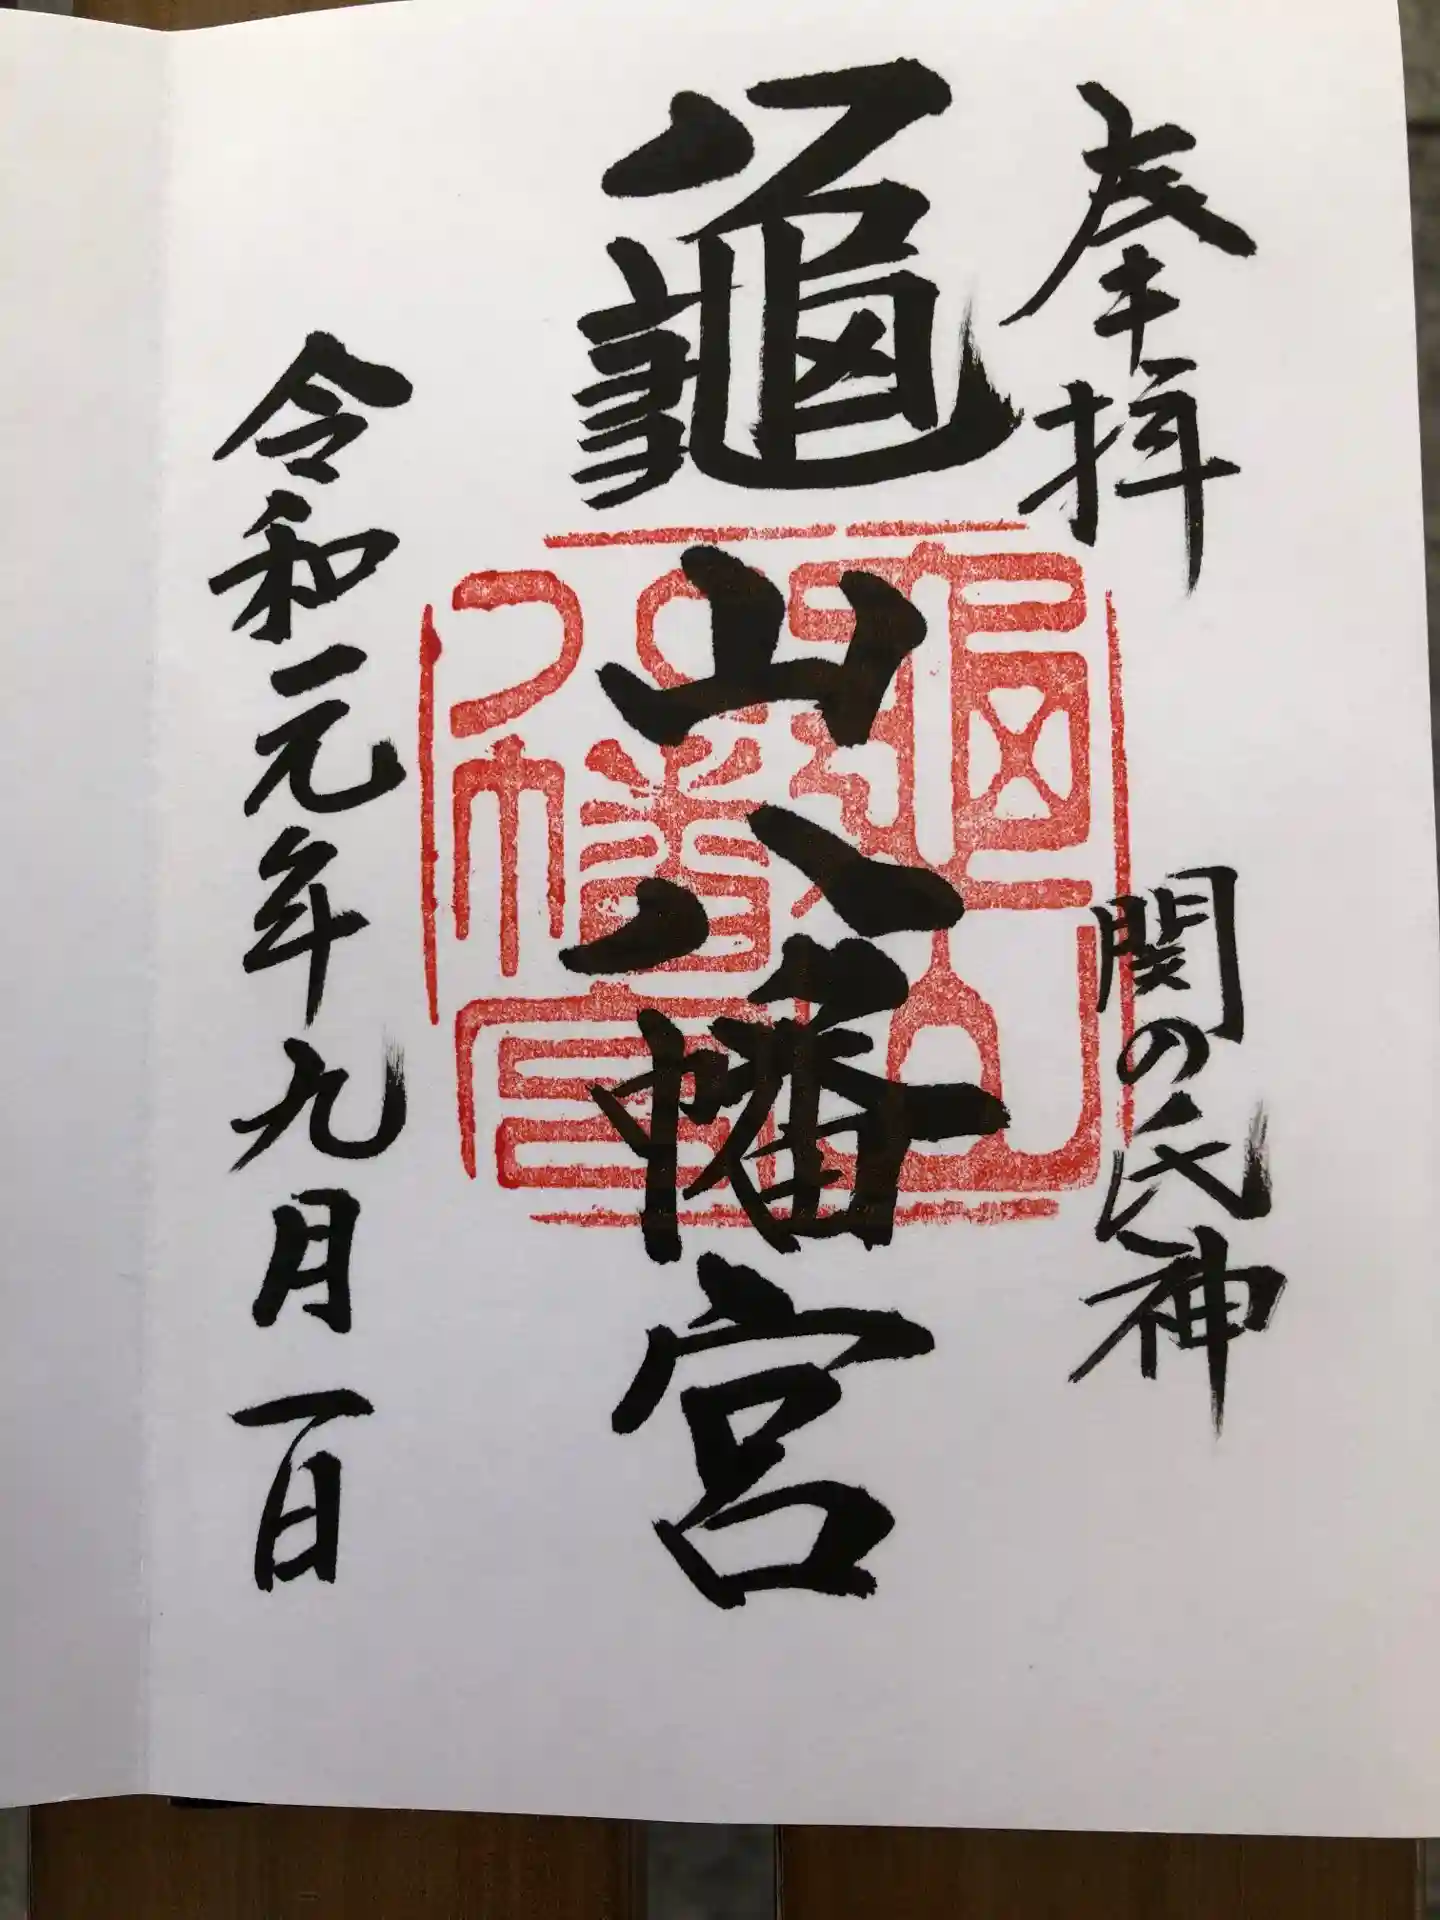 奉拝
関の氏神
龜山八幡宮
龜山八幡宮
令和元年九月一日